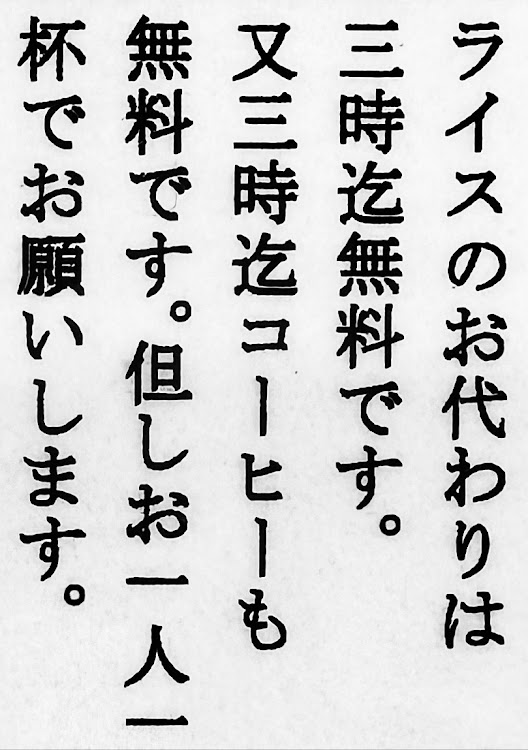 ライスのお代わりは
三時迄無料です。
又三時迄コーヒーも
無料です。但しお一人一
杯でお願いします。